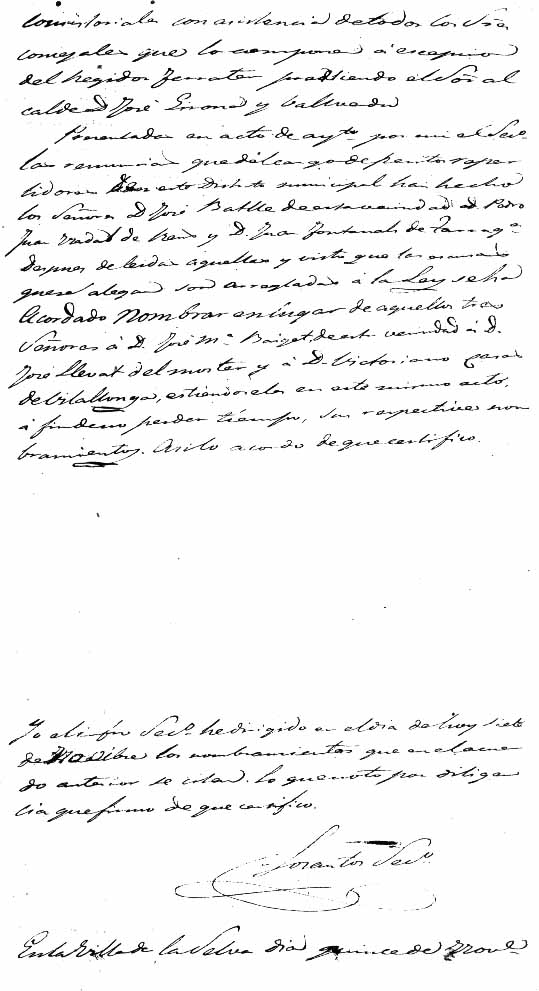 consistoriales con asistencia de todos los Sres
concejales que lo componen a escepcion
del Regidor Ferrater presidiendo el Sor al
calde D José Girona y Vallverdu
Presentadas en acto de aytº por mi el Secº
las renuncias que del cargo de peritos repar
tidores de este Distrito municipal han hecho
los Señores D José Batlle de esta vecindad D. Pedro
Juan de y D. Juan Fontanals de Tarragª
Despues de leidas aquellas y visto que las
que se alegan son arregladas á la Ley se ha
Acordado Nombrar en lugar de aquellos tres
Señores á D. José Mª Baiget de esta vecindad á D.
José Llevat del morter y á D. Victoriano
de Vilallonga, estiendoseles en este mismo acto,
á fin de no perder tiempo, sus respectivos nom
bramientos. Asi lo acordo de que certifico.
Yo el infro Secº he dirigido en el dia de hoy siete
de Novbre los nombramientos que en el acuer
do anterior se citan. Lo que noto por diligen
cia que firmo de que certifico.
Secº
En la Villa de la Selva dia quince de Novᵉ